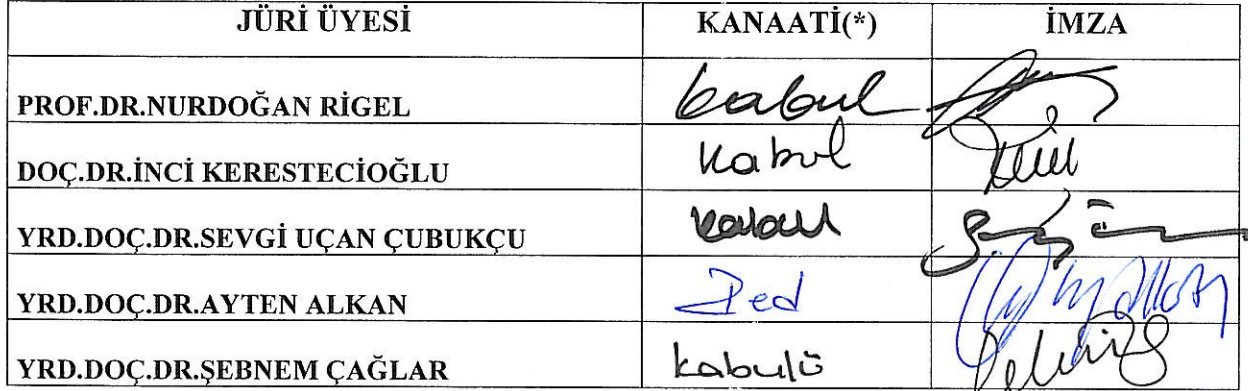 JÜRİ ÜYESİ KANAATİ(*) İMZA
PROF.DR.NURDOĞAN RİGEL kabul
DOÇ.DR.İNCİ KERESTECİOĞLU Kabul
YRD.DOÇ.DR.SEVGİ UÇAN ÇUBUKÇU kabul
YRD.DOÇ.DR.AYTEN ALKAN Red
YRD.DOÇ.DR.ŞEBNEM ÇAĞLAR kabulü